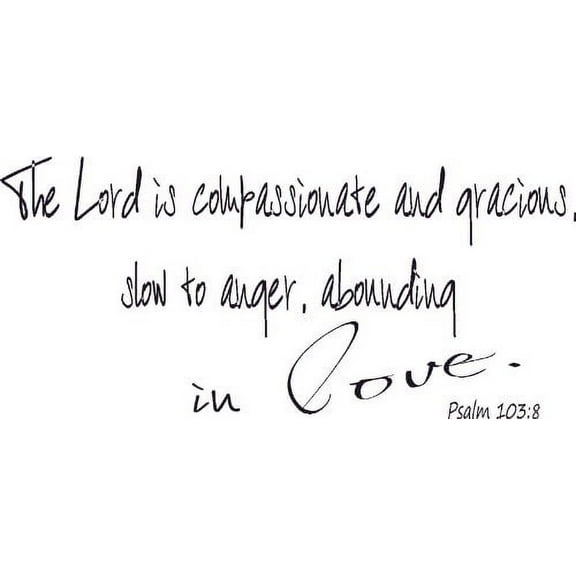 The Lord is compassionate and gracious,
slow to anger, abounding
in love.
Psalm 103:8